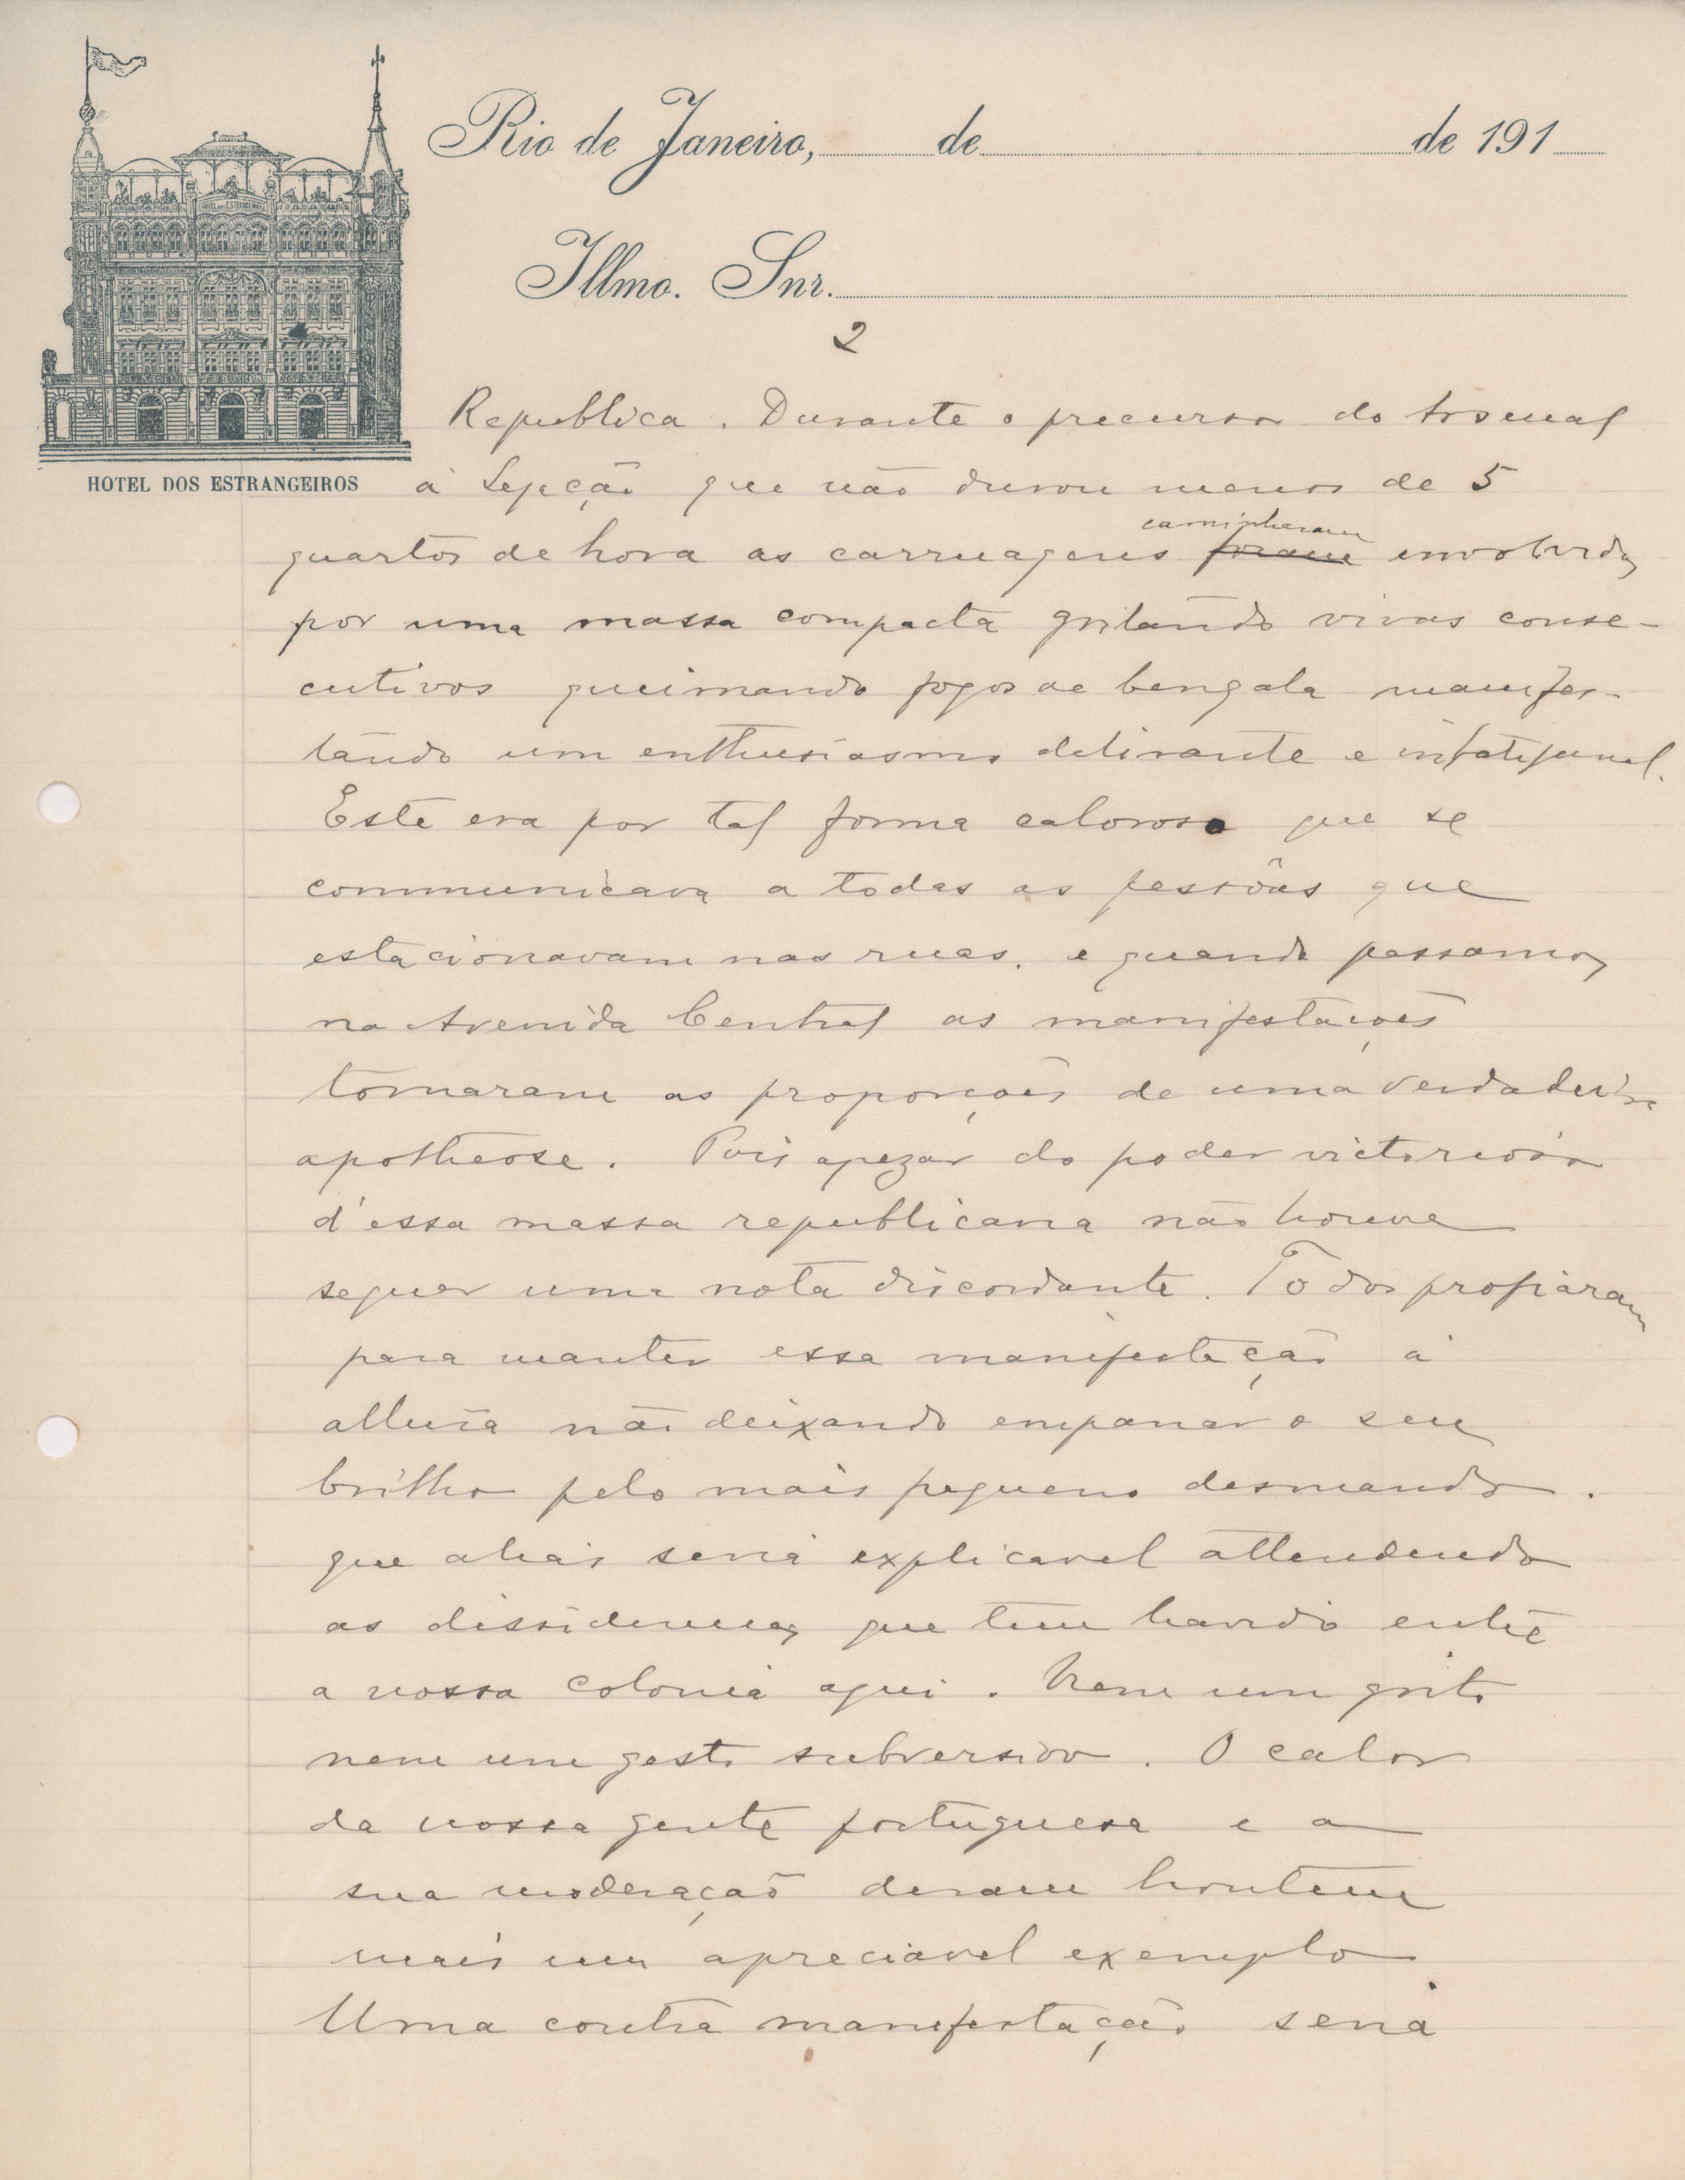 Rio de Janeiro, de de 191
Illmo. Snr.
HOTEL DOS ESTRANGEIROS
2
Republica. Durante o precurso do Arsenal
á Legação que não durou menos de 5
caminharam
quartos de hora as carruagens foram involvidas
por uma massa compacta gritando vivas conse-
cutivos queimando fogos de bengala manifes-
tando um enthusiasmo delirante e infatigavel.
Este era por tal forma caloroso que se
communicava a todas as pessôas que
estacionavam nas ruas. e quando passamos
na Avenida Central as manifestações
tomaram as proporções de uma verdadeira
apotheose. Pois apezar do poder victorioso
d'essa massa republicana não houve
sequer uma nota discordante. Todos profiaram
para manter essa manifestação á
altura não deixando empanar o seu
brilho pelo mais pequeno desmando.
que aliás seria explicavel attendendo
as dissidencias que tem havido entre
a nossa colonia aqui. Nem um grito
nem um gesto subversivo. O calor
da nossa gente portuguesa e a
sua moderação deram hontem
mais um apreciavel exemplo
Uma contra manifestação seria